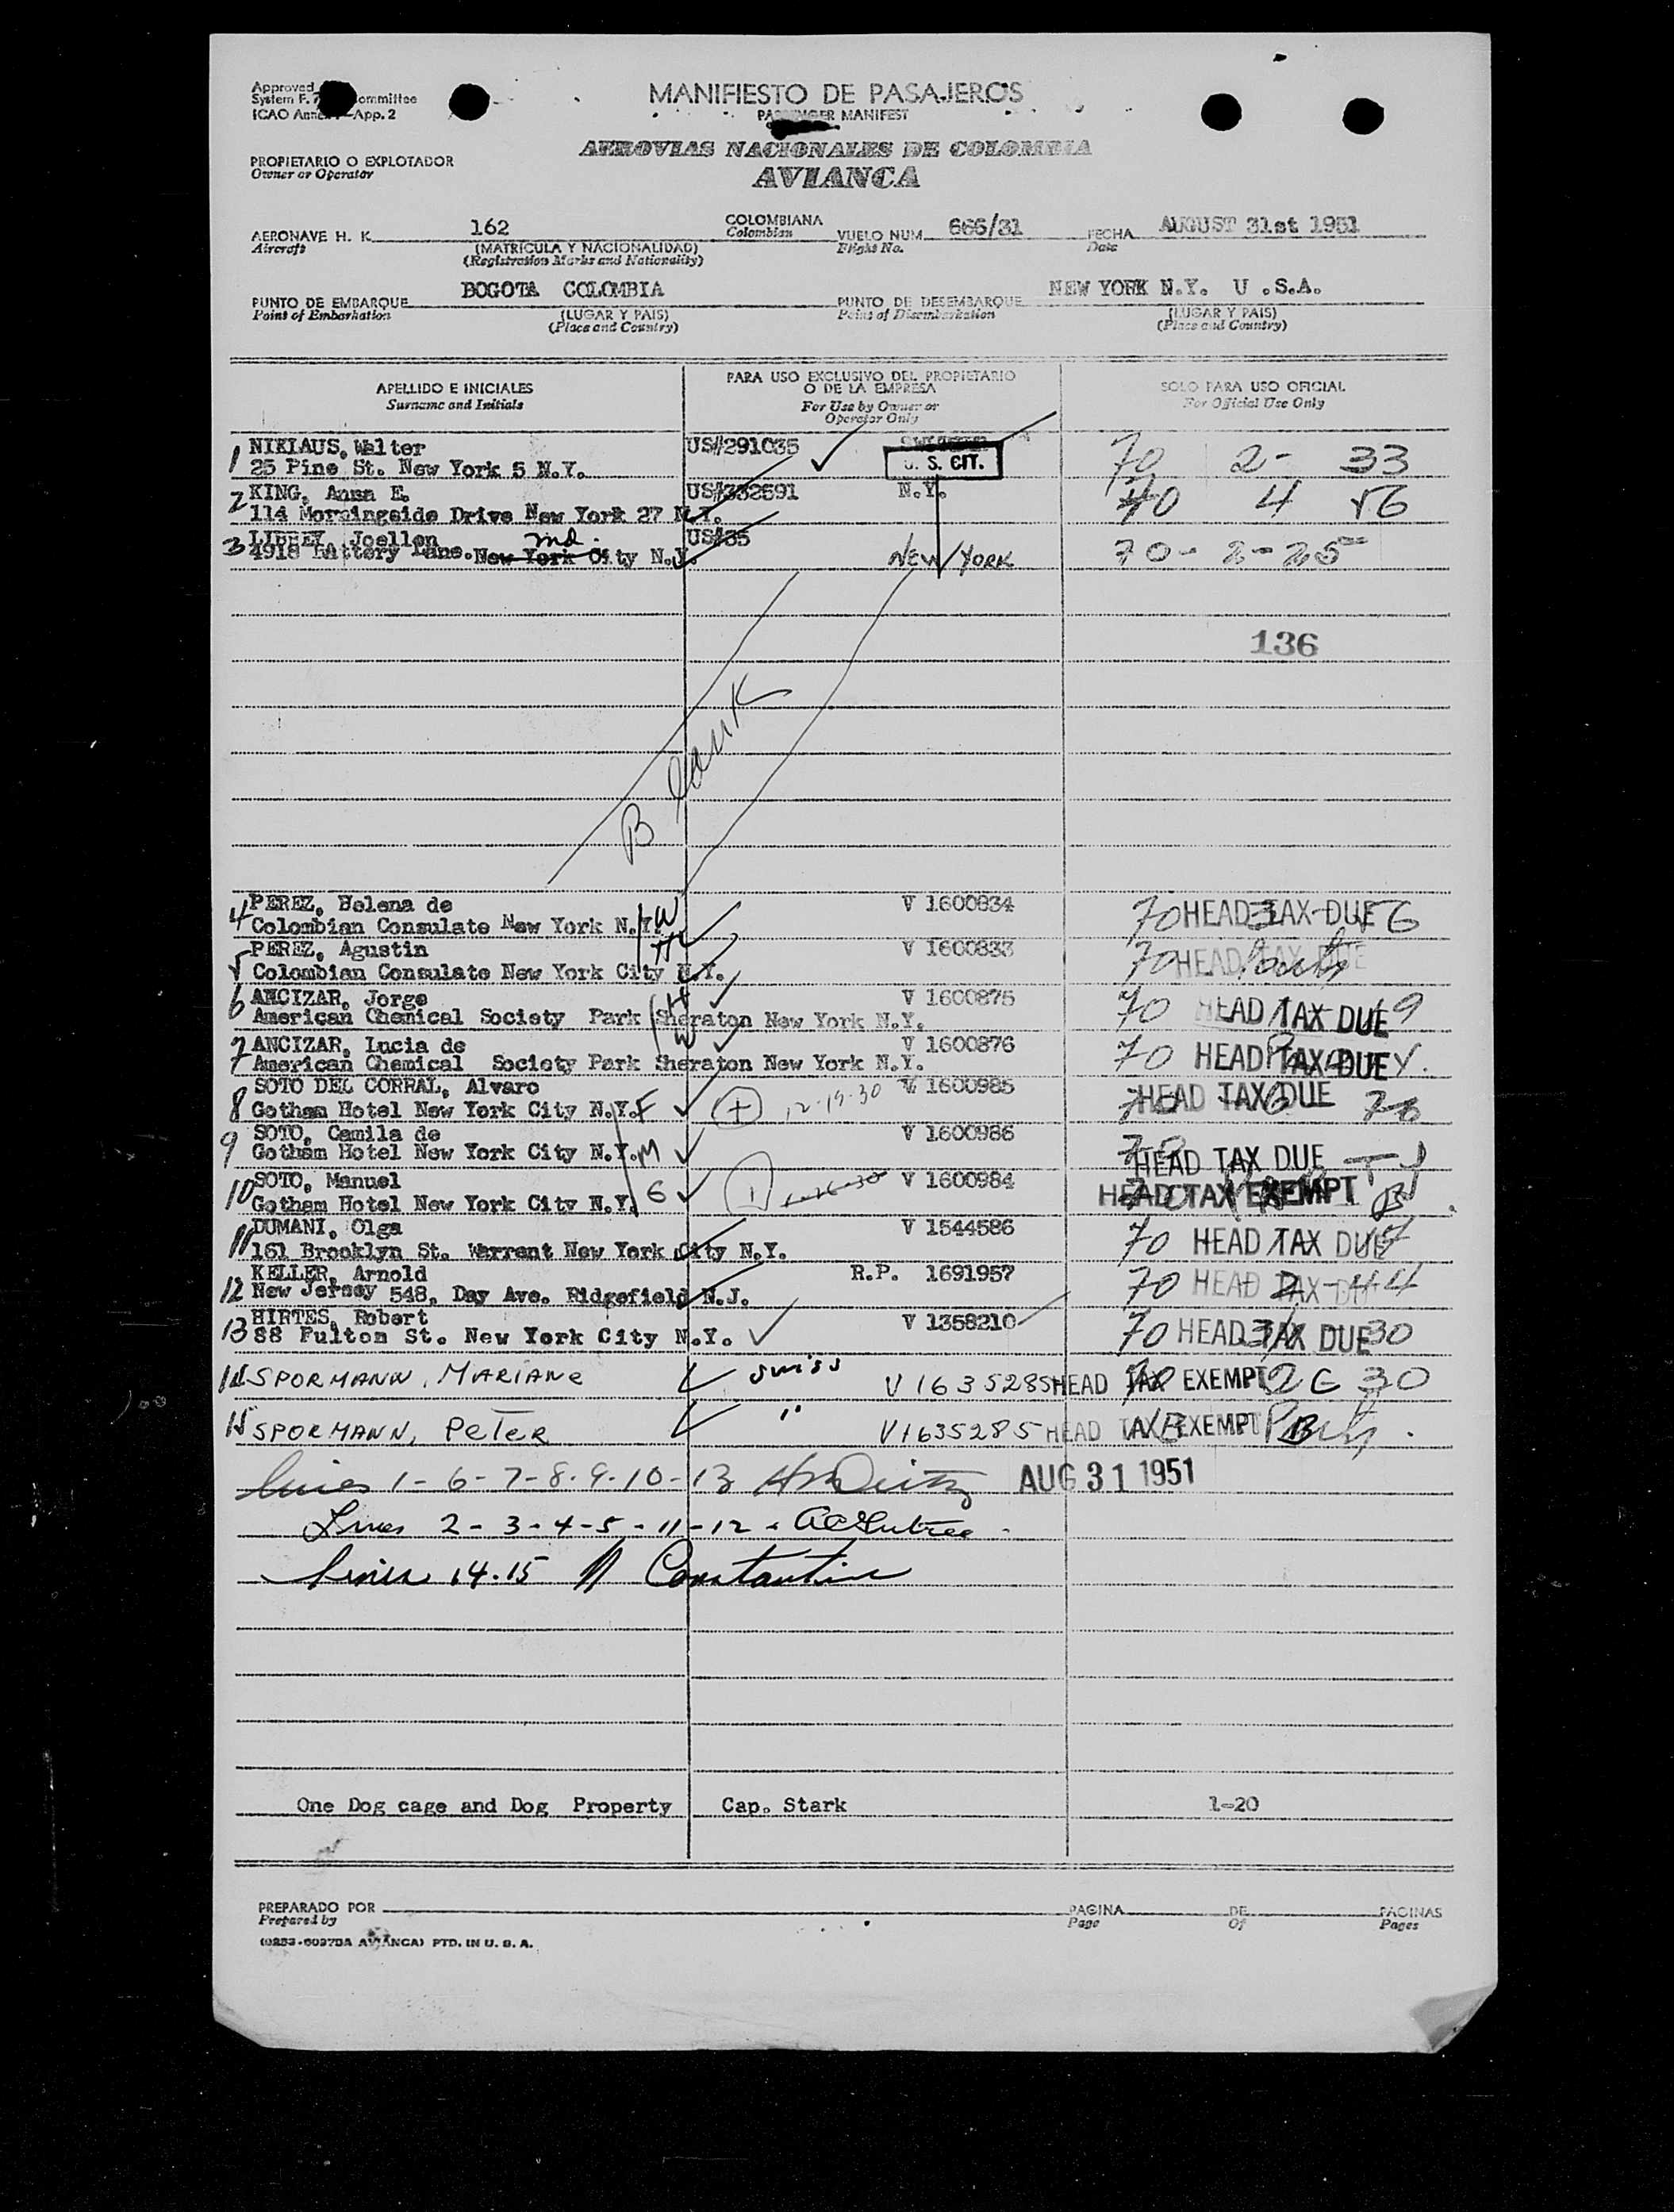 Approved
System F. ommittee
ICAO App. 2
MANIFIESTO DE PASAJEROS
PASSENGER MANIFEST
PROPIETARIO O EXPLOTADOR
Owner or Operator
AEROVIAS NACIONALES DE COLOMBIA
AVIANCA
AERONAVE H. K. 162 COLOMBIANA VUELO NUM. 666/31 FECHA AUGUST 31st 1951
Aircraft (MATRICULA Y NACIONALIDAD) Colombian Flight No. Date
(Registration Marks and Nationality)
PUNTO DE EMBARQUE BOGOTA COLOMBIA PUNTO DE DESEMBARQUE NEW YORK N.Y. U .S.A.
Point of Embarkation (LUGAR Y PAIS) Point of Disembarkation (LUGAR Y PAIS)
(Place and Country) (Place and Country)
APELLIDO E INICIALES PARA USO EXCLUSIVO DEL PROPIETARIO SOLO PARA USO OFICIAL
O DE LA EMPRESA
Surname and Initials For Use by Owner or For Official Use Only
Operator Only
1 NIKLAUS, Walter US#291035
25 Pine St. New York 5 N.Y. U. S. CIT. 70 2- 33
2 KING, Anna E. US#332691 N.Y.
114 Morningside Drive New York 27 N.Y. 70 4 56
3 LIBBEY, Joellen Md. US#35
4918 Battery Lane. New York City N.Y. NEW YORK 70-2-25
136
Blank
4 PEREZ, Helena de V 1600834
Colombian Consulate New York N.Y. W 70 HEAD TAX DUE 56
5 PEREZ, Agustin H V 1600833
Colombian Consulate New York City N.Y. 70 HEAD TAX DUE
6 ANCIZAR, Jorge H V 1600875
American Chemical Society Park Sheraton New York N.Y. 70 HEAD TAX DUE
7 ANCIZAR, Lucia de W V 1600876
American Chemical Society Park Sheraton New York N.Y. 70 HEAD TAX DUE
8 SOTO DEL CORRAL, Alvaro V 1600985
Gotham Hotel New York City N.Y. F + 12-19-30 70 HEAD TAX DUE
9 SOTO, Camila de V 1600986
Gotham Hotel New York City N.Y. M HEAD TAX DUE
10 SOTO, Manuel V 1600984
Gotham Hotel New York City N.Y. G HEAD TAX EXEMPT
11 DUMANI, Olga V 1544586
161 Brooklyn St. Warrent New York City N.Y. 70 HEAD TAX DUE
12 KELLER, Arnold R.P. 1691957
New Jersey 548, Day Ave. Ridgefield N.J. 70 HEAD TAX 44
13 HIRTES, Robert V 1358210
88 Fulton St. New York City N.Y. 70 HEAD TAX DUE 30
14 SPORMANN, MARIANE swiss V 1635285 HEAD TAX EXEMPT 30
15 SPORMANN, PETER " V1635285 HEAD TAX EXEMPT
Lines 1-6-7-8-9-10-13 AUG 31 1951
Lines 2-3-4-5-11-12
Lines 14.15 Constantine
One Dog cage and Dog Property Cap. Stark 1-20
PREPARADO POR PAGINA DE PAGINAS
Prepared by Page Of Pages
AVIANCA) PTD. IN U. S. A.